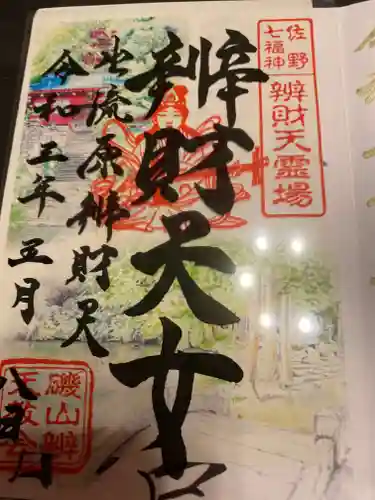 佐野
七福神
辨財天霊場
辨財天女
出流原辨財天
令和二年五月
磯山辨